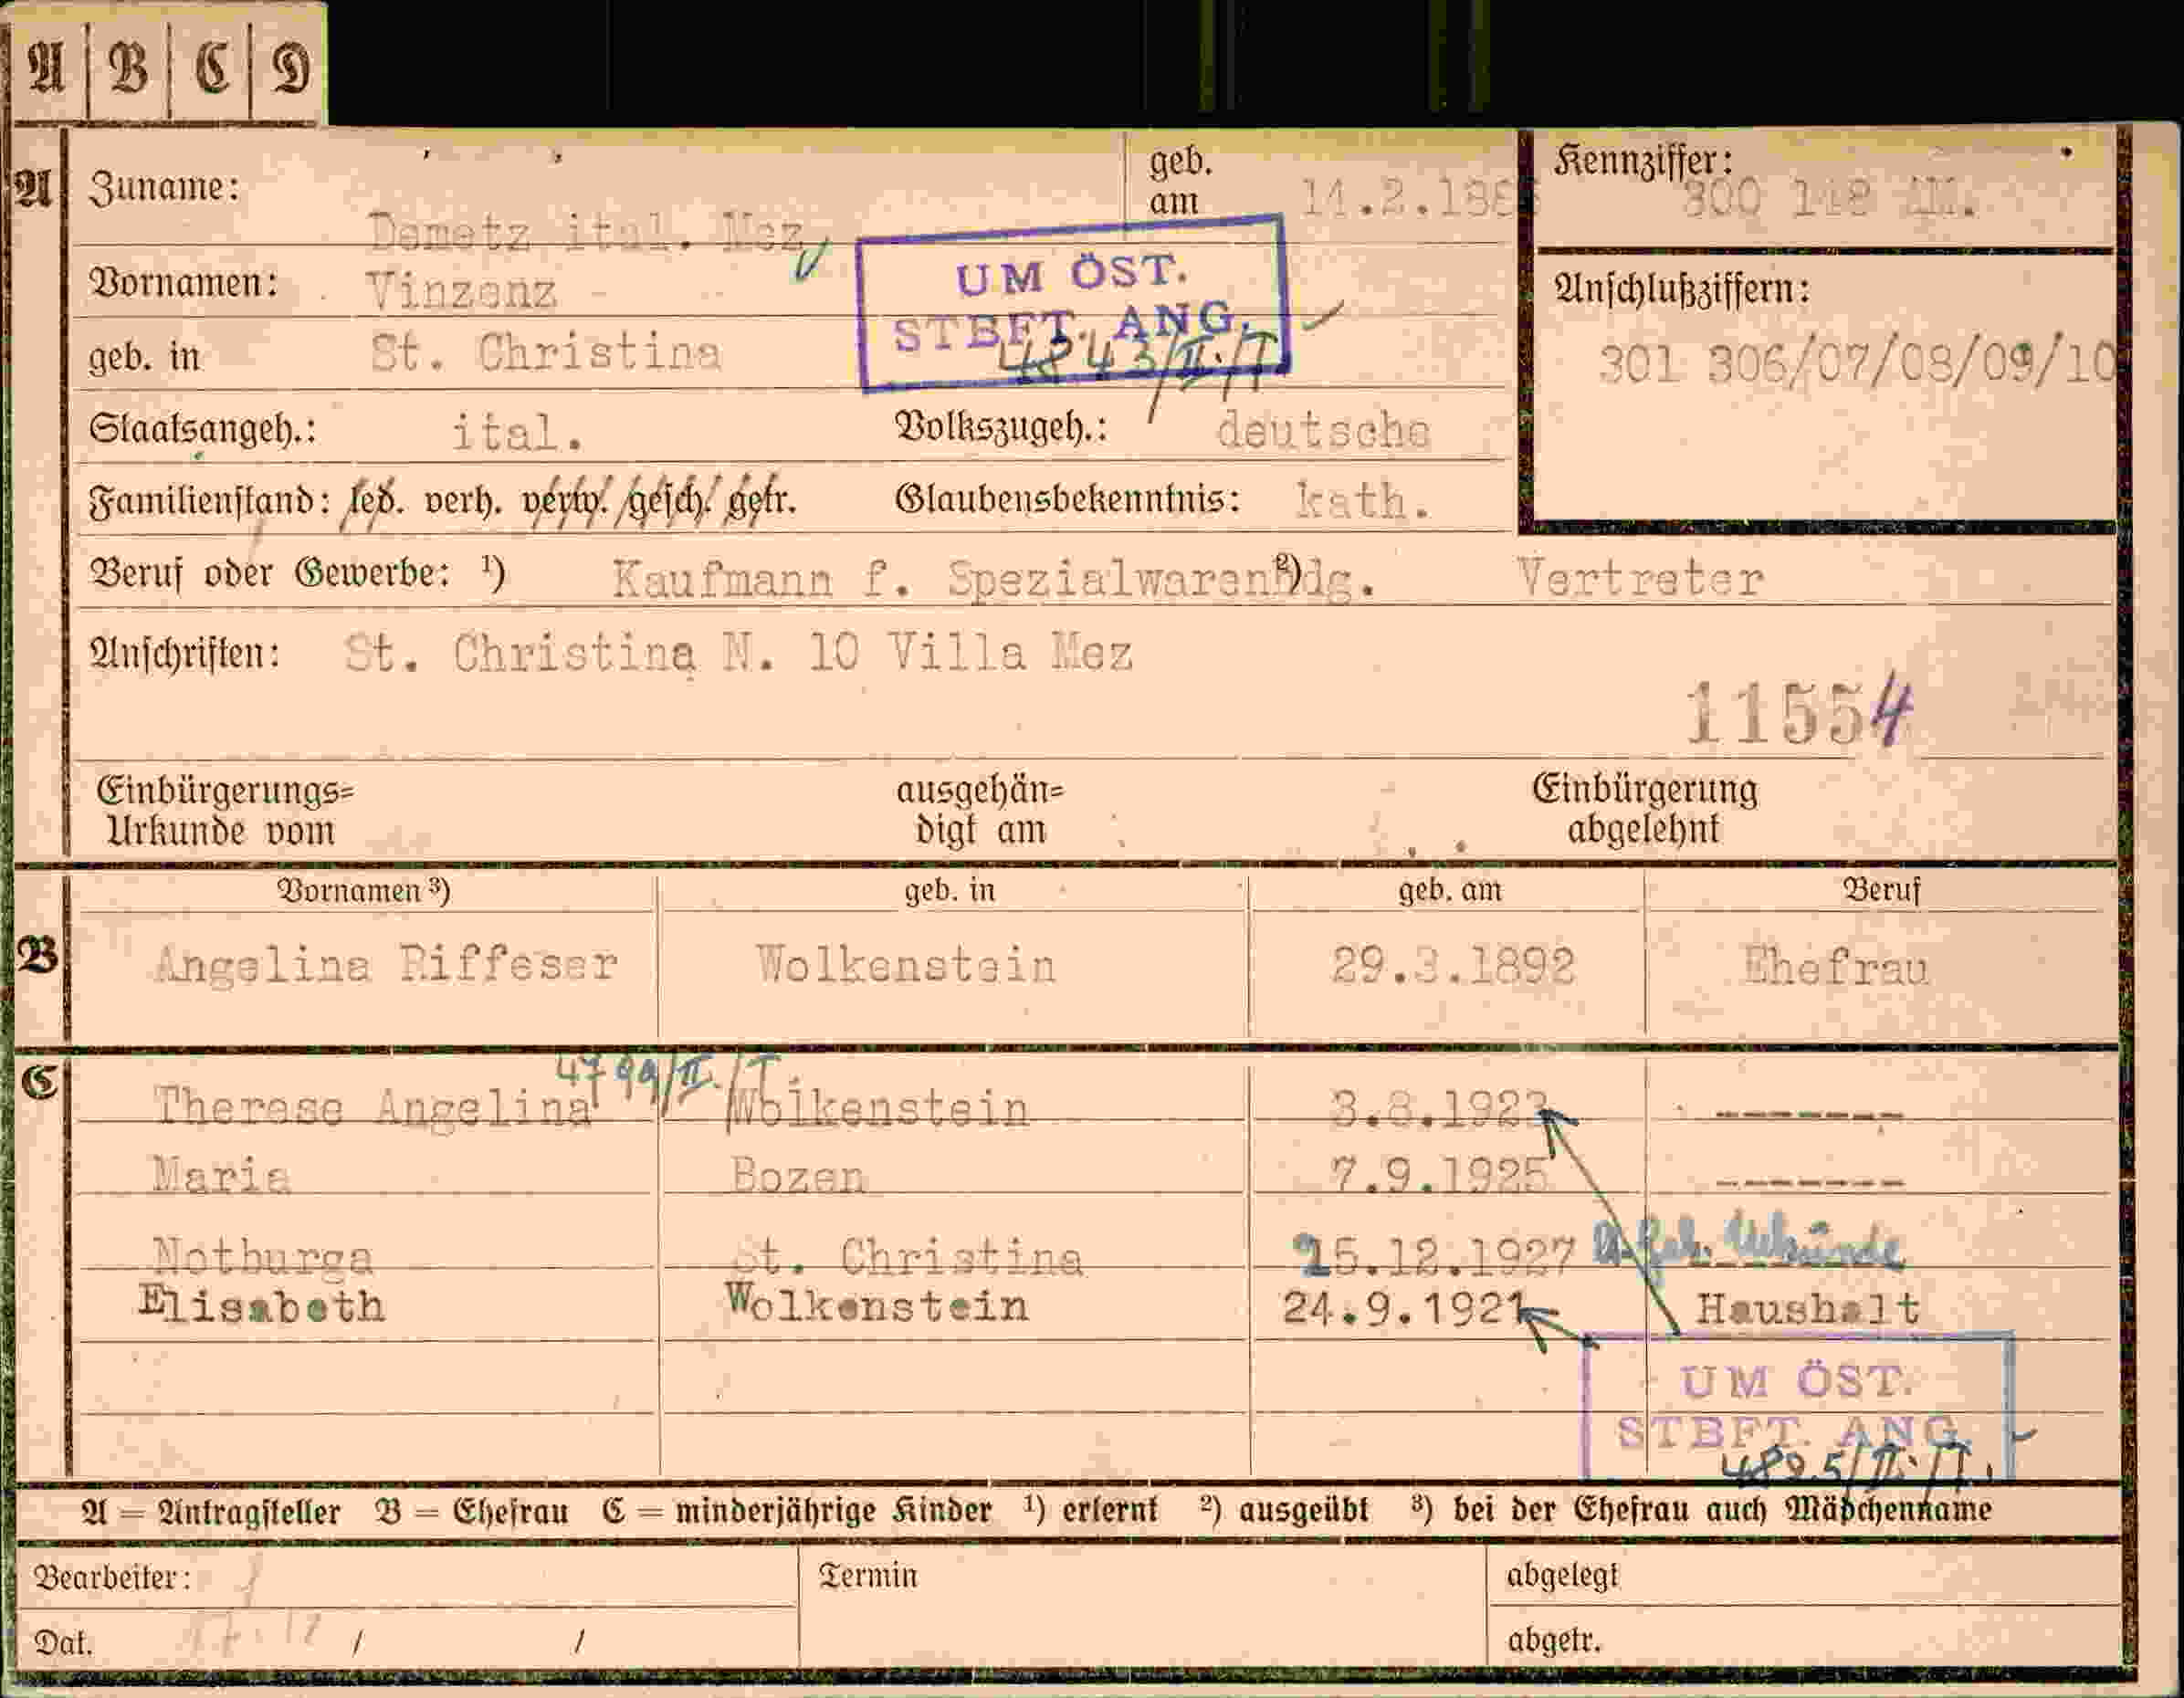 A B C D
A Zuname: Demetz ital. Mez
geb. am 14.2.188
Kennziffer: 300 148 AM.
Vornamen: Vinzenz
UM ÖST.
STBFT. ANG.
4843/II./T
Anschlußziffern:
301 306/07/08/09/10
geb. in St. Christina
Staatsangeh.: ital. Volkszugeh.: deutsche
Familienstand: led. verh. verw. gesch. getr. Glaubensbekenntnis: kath.
Beruf oder Gewerbe: ¹) Kaufmann f. Spezialwarenhdg. ²) Vertreter
Anschriften: St. Christina N. 10 Villa Mez
11554
Einbürgerungs= Urkunde vom
ausgehän= digt am
Einbürgerung abgelehnt
Vornamen ³) geb. in geb. am Beruf
B Angelina Riffeser Wolkenstein 29.3.1892 Ehefrau
4799/II./T
C Therese Angelina Wolkenstein 3.8.1923 -------
Maria Bozen 7.9.1925 -------
Notburga St. Christina 15.12.1927 Urkunde
Elisabeth Wolkenstein 24.9.1921 Haushalt
UM ÖST.
STBFT. ANG.
4825/II./T.
A = Antragsteller B = Ehefrau C = minderjährige Kinder ¹) erlernt ²) ausgeübt ³) bei der Ehefrau auch Mädchenname
Bearbeiter: Termin abgelegt
Dat. / / abgetr.